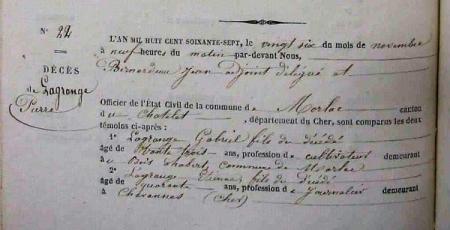 N° 22
DÉCÈS
de Lagrange
Pierre
L'AN MIL HUIT CENT SOIXANTE-SEPT, le vingt six du mois de novembre
à neuf heures du matin par-devant Nous,
Jean adjoint délégué et
Officier de l'État Civil de la commune de Morlac canton
du Chatelet, département du Cher, sont comparus les deux
témoins ci-après :
1° Lagrange Gabriel fils de décédé
âgé de trois ans, profession de cultivateur demeurant
au Bois commune de Morlac
2° Lagrange Etienne fils de décédé
âgé de quarante ans, profession de Journalier demeurant
à Chavannes (Cher)